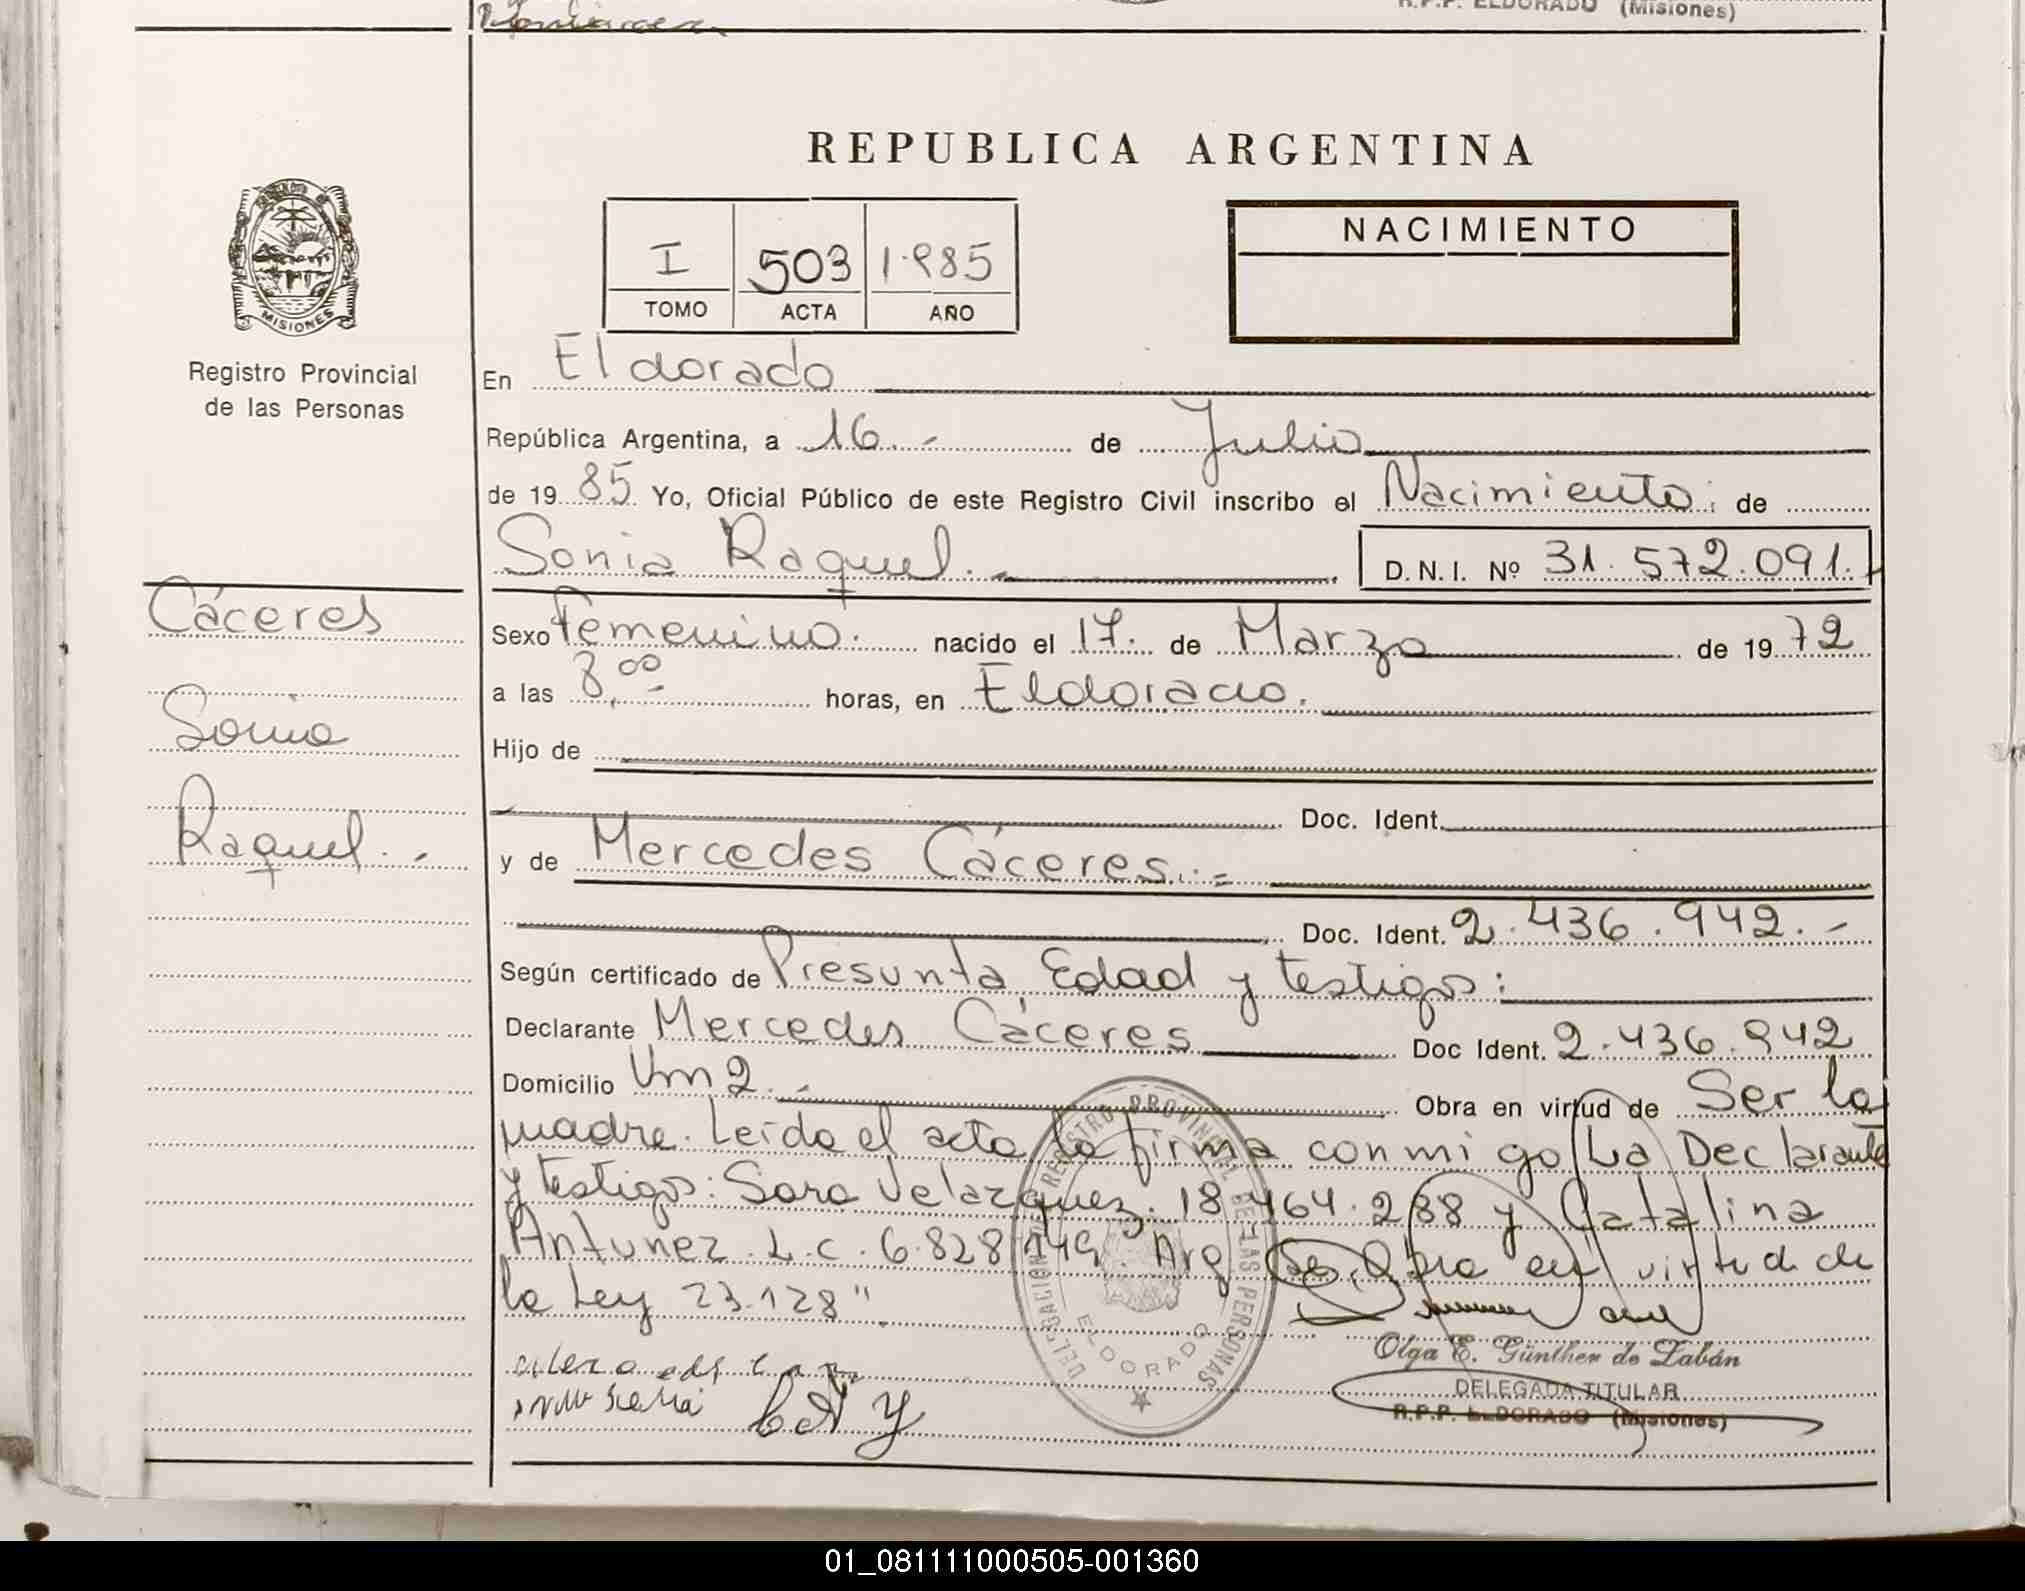 R.P.P. ELDORADO (Misiones)
REPUBLICA ARGENTINA
I 503 1.985
TOMO ACTA AÑO
NACIMIENTO
MISIONES
Registro Provincial
de las Personas
Cáceres
Sonia
Raquel.-
En Eldorado
República Argentina, a 16.- de Julio
de 1985 Yo, Oficial Público de este Registro Civil inscribo el Nacimiento: de
Sonia Raquel.- D.N.I. Nº 31.572.091.
Sexo Femenino. nacido el 17. de Marzo de 1972
a las 8,00- horas, en Eldorado.
Hijo de
Doc. Ident.
y de Mercedes Cáceres.:=
Doc. Ident. 2.436.942.-
Según certificado de Presunta Edad y testigos:
Declarante Mercedes Cáceres Doc Ident. 2.436.942
Domicilio Km 2.- Obra en virtud de Ser la
madre. Leída el acta la firma conmigo La Declarante
y testigos: Sara Velazquez. 18.464.288 y Catalina
Antunez. L.C. 6.828.149. Arg. Se Obra en virtud de
la Ley 23.128".
DELEGACION DE REGISTRO PROVINCIAL DE LAS PERSONAS
ELDORADO
Olga E. Günther de Zabán
DELEGADA TITULAR
R.P.P. ELDORADO (Misiones)
01_081111000505-001360